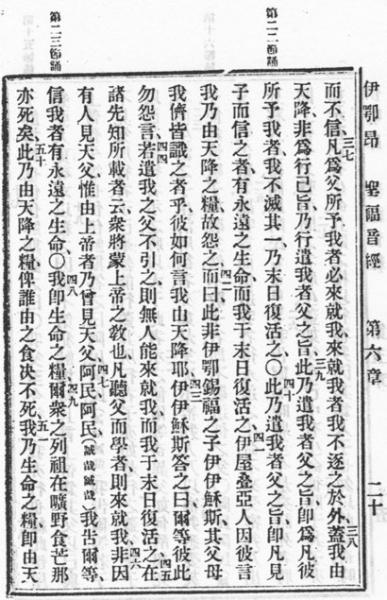 伊鄂昂 聖福音經 第六章 二十
第二二節誦
第二三節誦
而不信、三七凡爲父所予我者必來就我、來就我者、我不逐之於外、三八蓋我由
天降、非爲行己旨、乃行遣我者父之旨、三九此乃遣我者父之旨、卽爲凡彼
所予我者、我不滅其一、乃末日復活之、〇四十此乃遣我者父之旨、卽凡見
子而信之者、有永遠之生命、而我于末日復活之、四一伊屋疊亞人因彼言
我乃由天降之糧、故怨之、四二而曰、此非伊鄂錫福之子伊伊穌斯、其父母
我儕皆識之者乎、彼如何言我由天降耶、四三伊伊穌斯答之曰、爾等彼此
勿怨言、四四若遣我之父不引之、則無人能來就我、而我于末日復活之、四五在
諸先知所載者云、衆將蒙上帝之敎也、凡聽父而學者、則來就我、四六非因
有人見天父、惟由上帝者、乃曾見天父、四七阿民阿民、(誠哉誠哉)我吿爾等、
信我者有永遠之生命、〇四八我卽生命之糧、四九爾衆之列祖在曠野食芒那
亦死矣、五十此乃由天降之糧、俾誰由之食、决不死、五一我乃生命之糧、卽由天